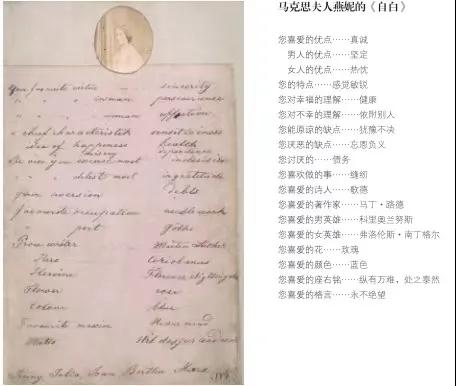 Your favourite virtue sincerity
" " " in man perseverance
" " " woman affection
" chief characteristik sensitiveness
Idea of happiness health
" misery dependence
The vice you excuse most indecision
" " detest most ingratitude
Your aversion debts
Favourite occupation needle work
" poet Göthe
Prose writer Martin Luther
Hero Coriolanus
Heroine Florence Nightingale
Flower rose
Colour blue
Favourite maxim Never mind
Motto Nil desperandum
Jenny Julia Joan Bertha Marx
马克思夫人燕妮的《自白》
您喜爱的优点……真诚
男人的优点……坚定
女人的优点……热忱
您的特点……感觉敏锐
您对幸福的理解……健康
您对不幸的理解……依附别人
您能原谅的缺点……犹豫不决
您厌恶的缺点……忘恩负义
您讨厌的……债务
您喜欢做的事……缝纫
您喜爱的诗人……歌德
您喜爱的著作家……马丁·路德
您喜爱的男英雄……科里奥兰努斯
您喜爱的女英雄……弗洛伦斯·南丁格尔
您喜爱的花……玫瑰
您喜爱的颜色……蓝色
您喜爱的座右铭……纵有万难，处之泰然
您喜爱的格言……永不绝望